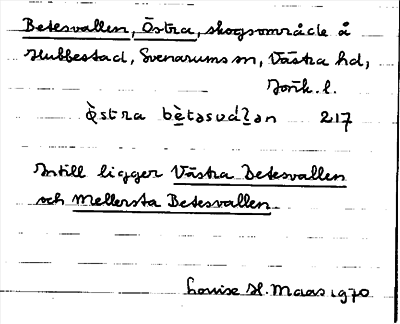 Betesvallen, Östra, skogsområde å
Hubbestad, Svenarums sn, Västra hd,
Jönk. l.
östra be̱tasvalan 217
Intill ligger Västra Betesvallen
och Mellersta Betesvallen
Louise H. Maas 1970